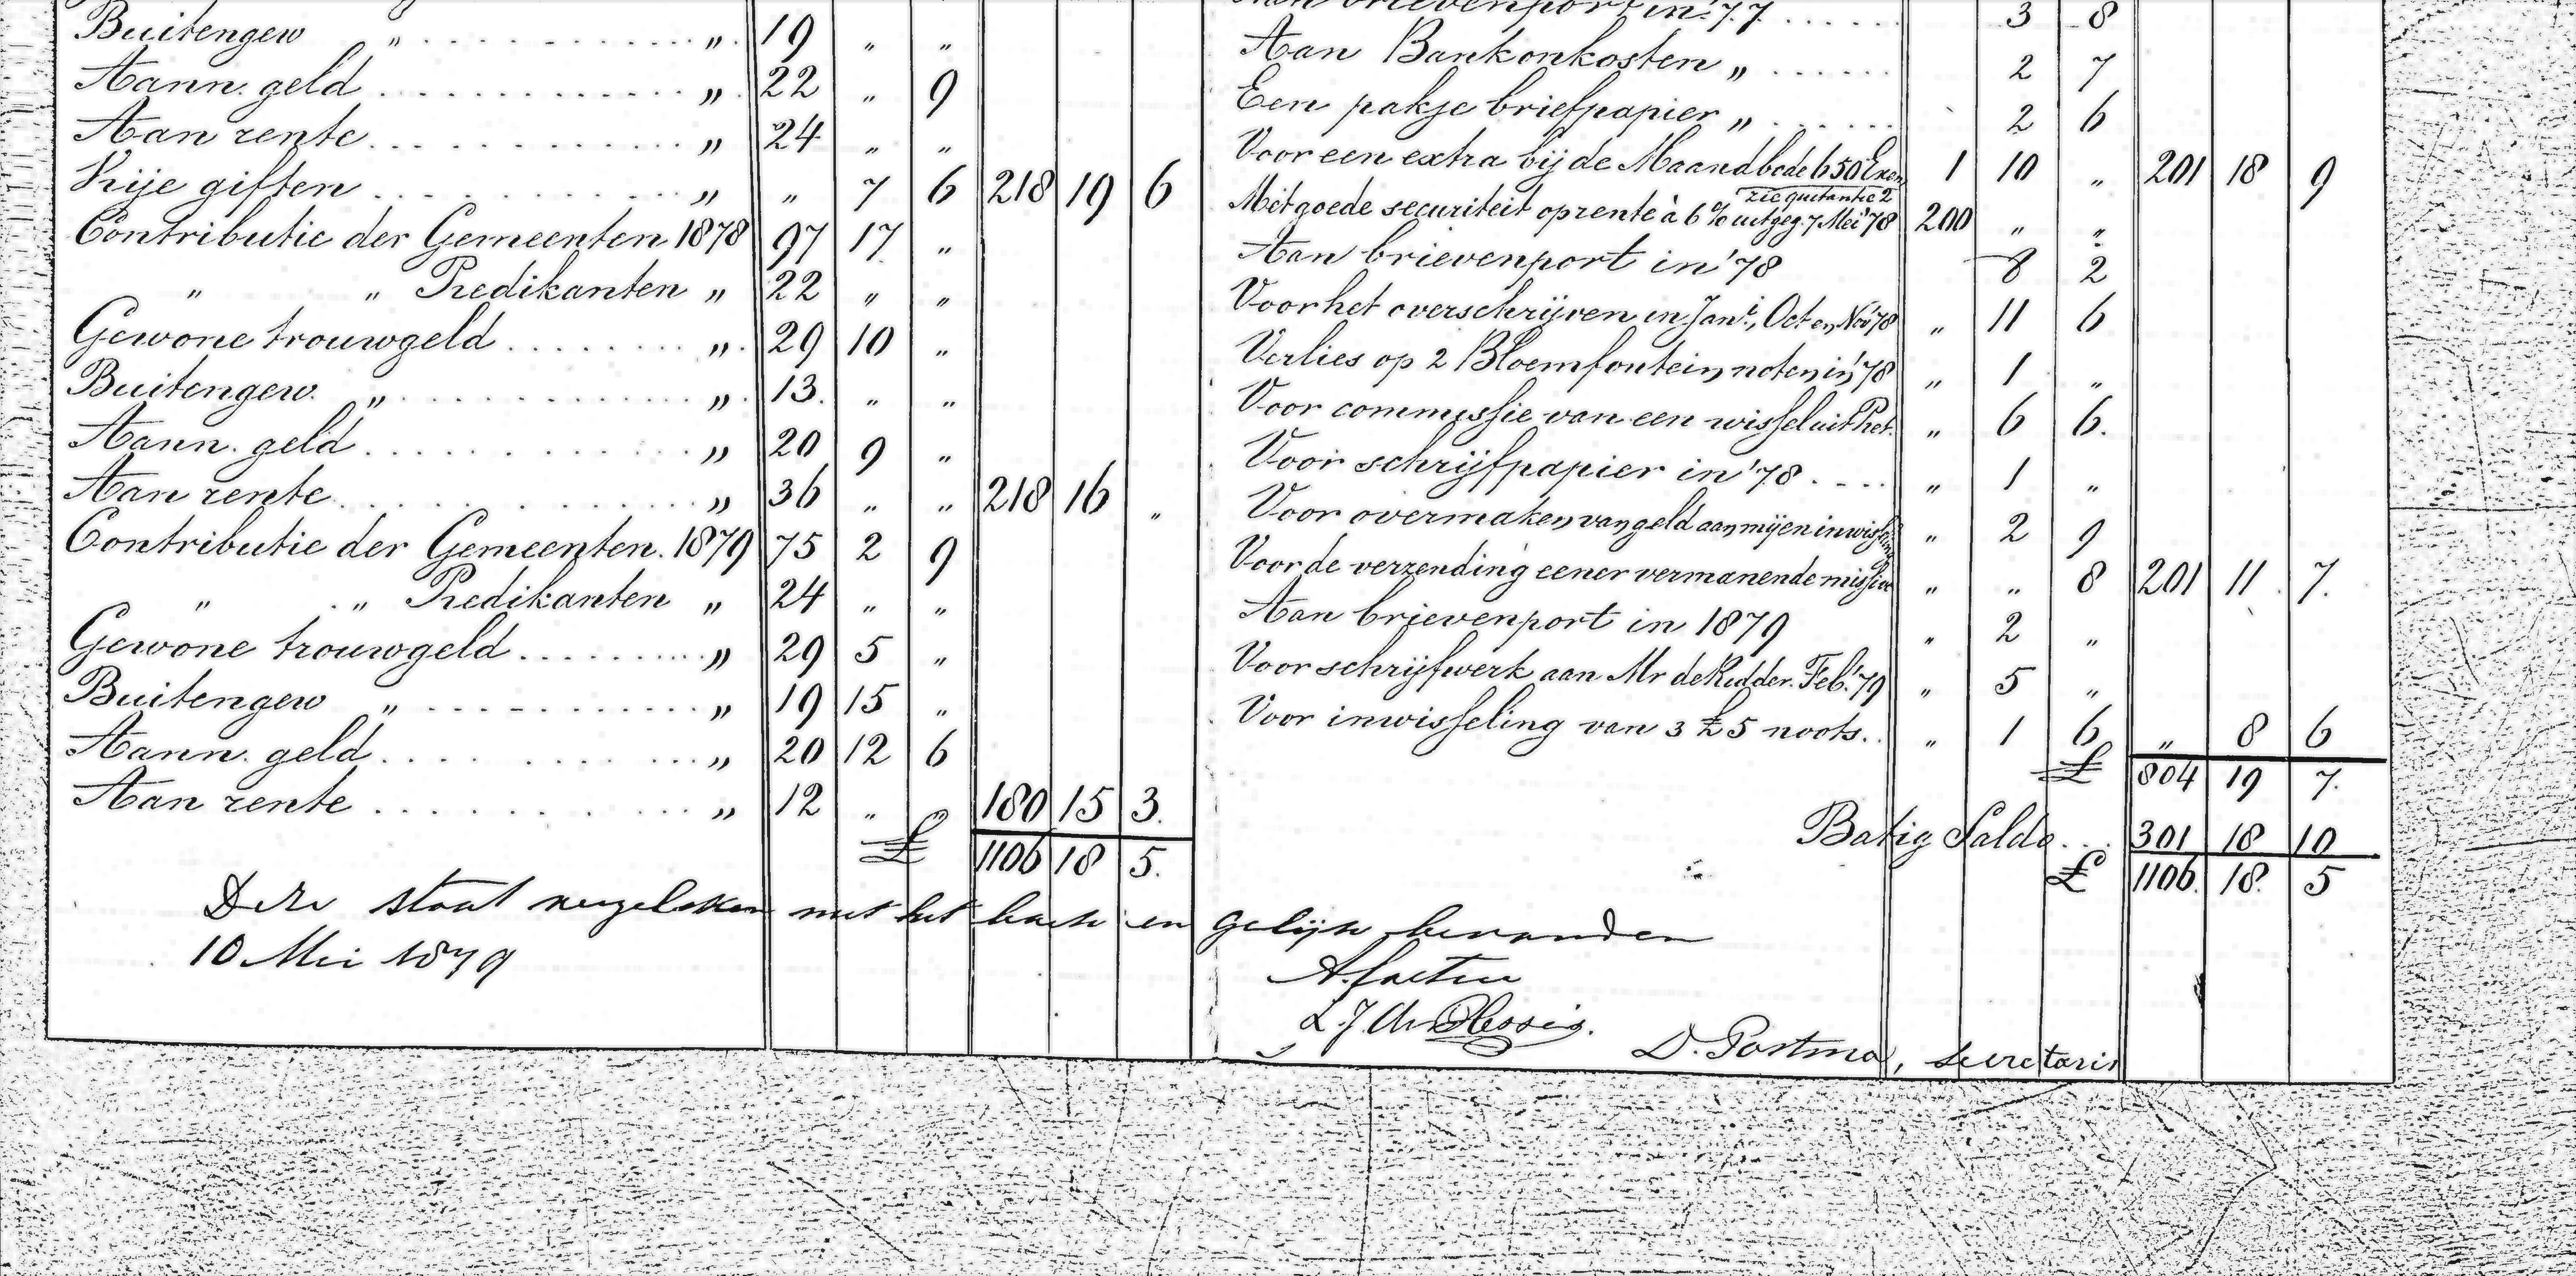 Buitengew " " 19 " "
Aann. geld " 22 " 9
Aan rente " 24 " "
Vrije giften " " 7 6 218 19 6
Contributie der Gemeenten 1878 97 17 "
" " Predikanten " 22 " "
Gewone trouwgeld " 29 10 "
Buitengew. " " 13. " "
Aann. geld " 20 9 "
Aan rente " 36 " " 218 16 "
Contributie der Gemeenten. 1879 75 2 9
" " Predikanten " 24 " "
Gewone trouwgeld " 29 5 "
Buitengew " " 19 15 "
Aann. geld " 20 12 6
Aan rente " 12 " " 180 15 3.
£ 1106 18 5.
Aan brievenport in '77 3 8
Aan Bankonkosten " 2 7
Een pakje briefpapier " 2 6
Voor een extra bij de Maandbode 650 Exen 1 10 " 201 18 9
zie quitantie 2
Met goede securiteit op rente à 6% uitgeg. 7 Mei '78 200 " "
Aan brievenport in '78 8 2
Voor het overschrijven in Jan., Oct en Nov '78 " 11 6
Verlies op 2 Bloemfontein noten in '78 " 1 "
Voor commissie van een wissel uit Pret. " 6 6.
Voor schrijfpapier in '78 " 1 "
Voor overmaken van geld aan mij en inwisseling " 2 9
Voor de verzending eener vermanende missive " " 8 201 11 7.
Aan brievenport in 1879 " 2 "
Voor schrijfwerk aan Mr de Ridder. Feb. '79 " 5 "
Voor inwisseling van 3 £5 noots. " 1 6 " 8 6
£ 804 19 7.
Batig Saldo 301 18 10
£ 1106. 18. 5
Deze staat vergeleken met het boek en gelijk bevonden
10 Mei 1879
L. J. du Plessis.
D. Postma, secretaris